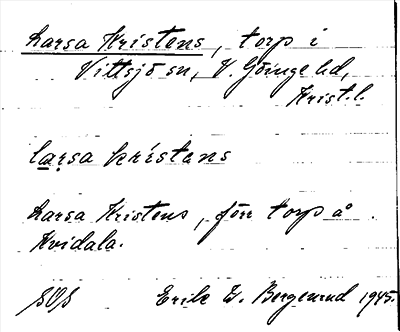 Larsa Kristens, torp i
Vittsjö sn, V. Göinge hd,
Krist.l.
larsa kristens
Larsa Kristens, förr torp å
Kvidala.
SOS Erik G. Bergerud 1945.